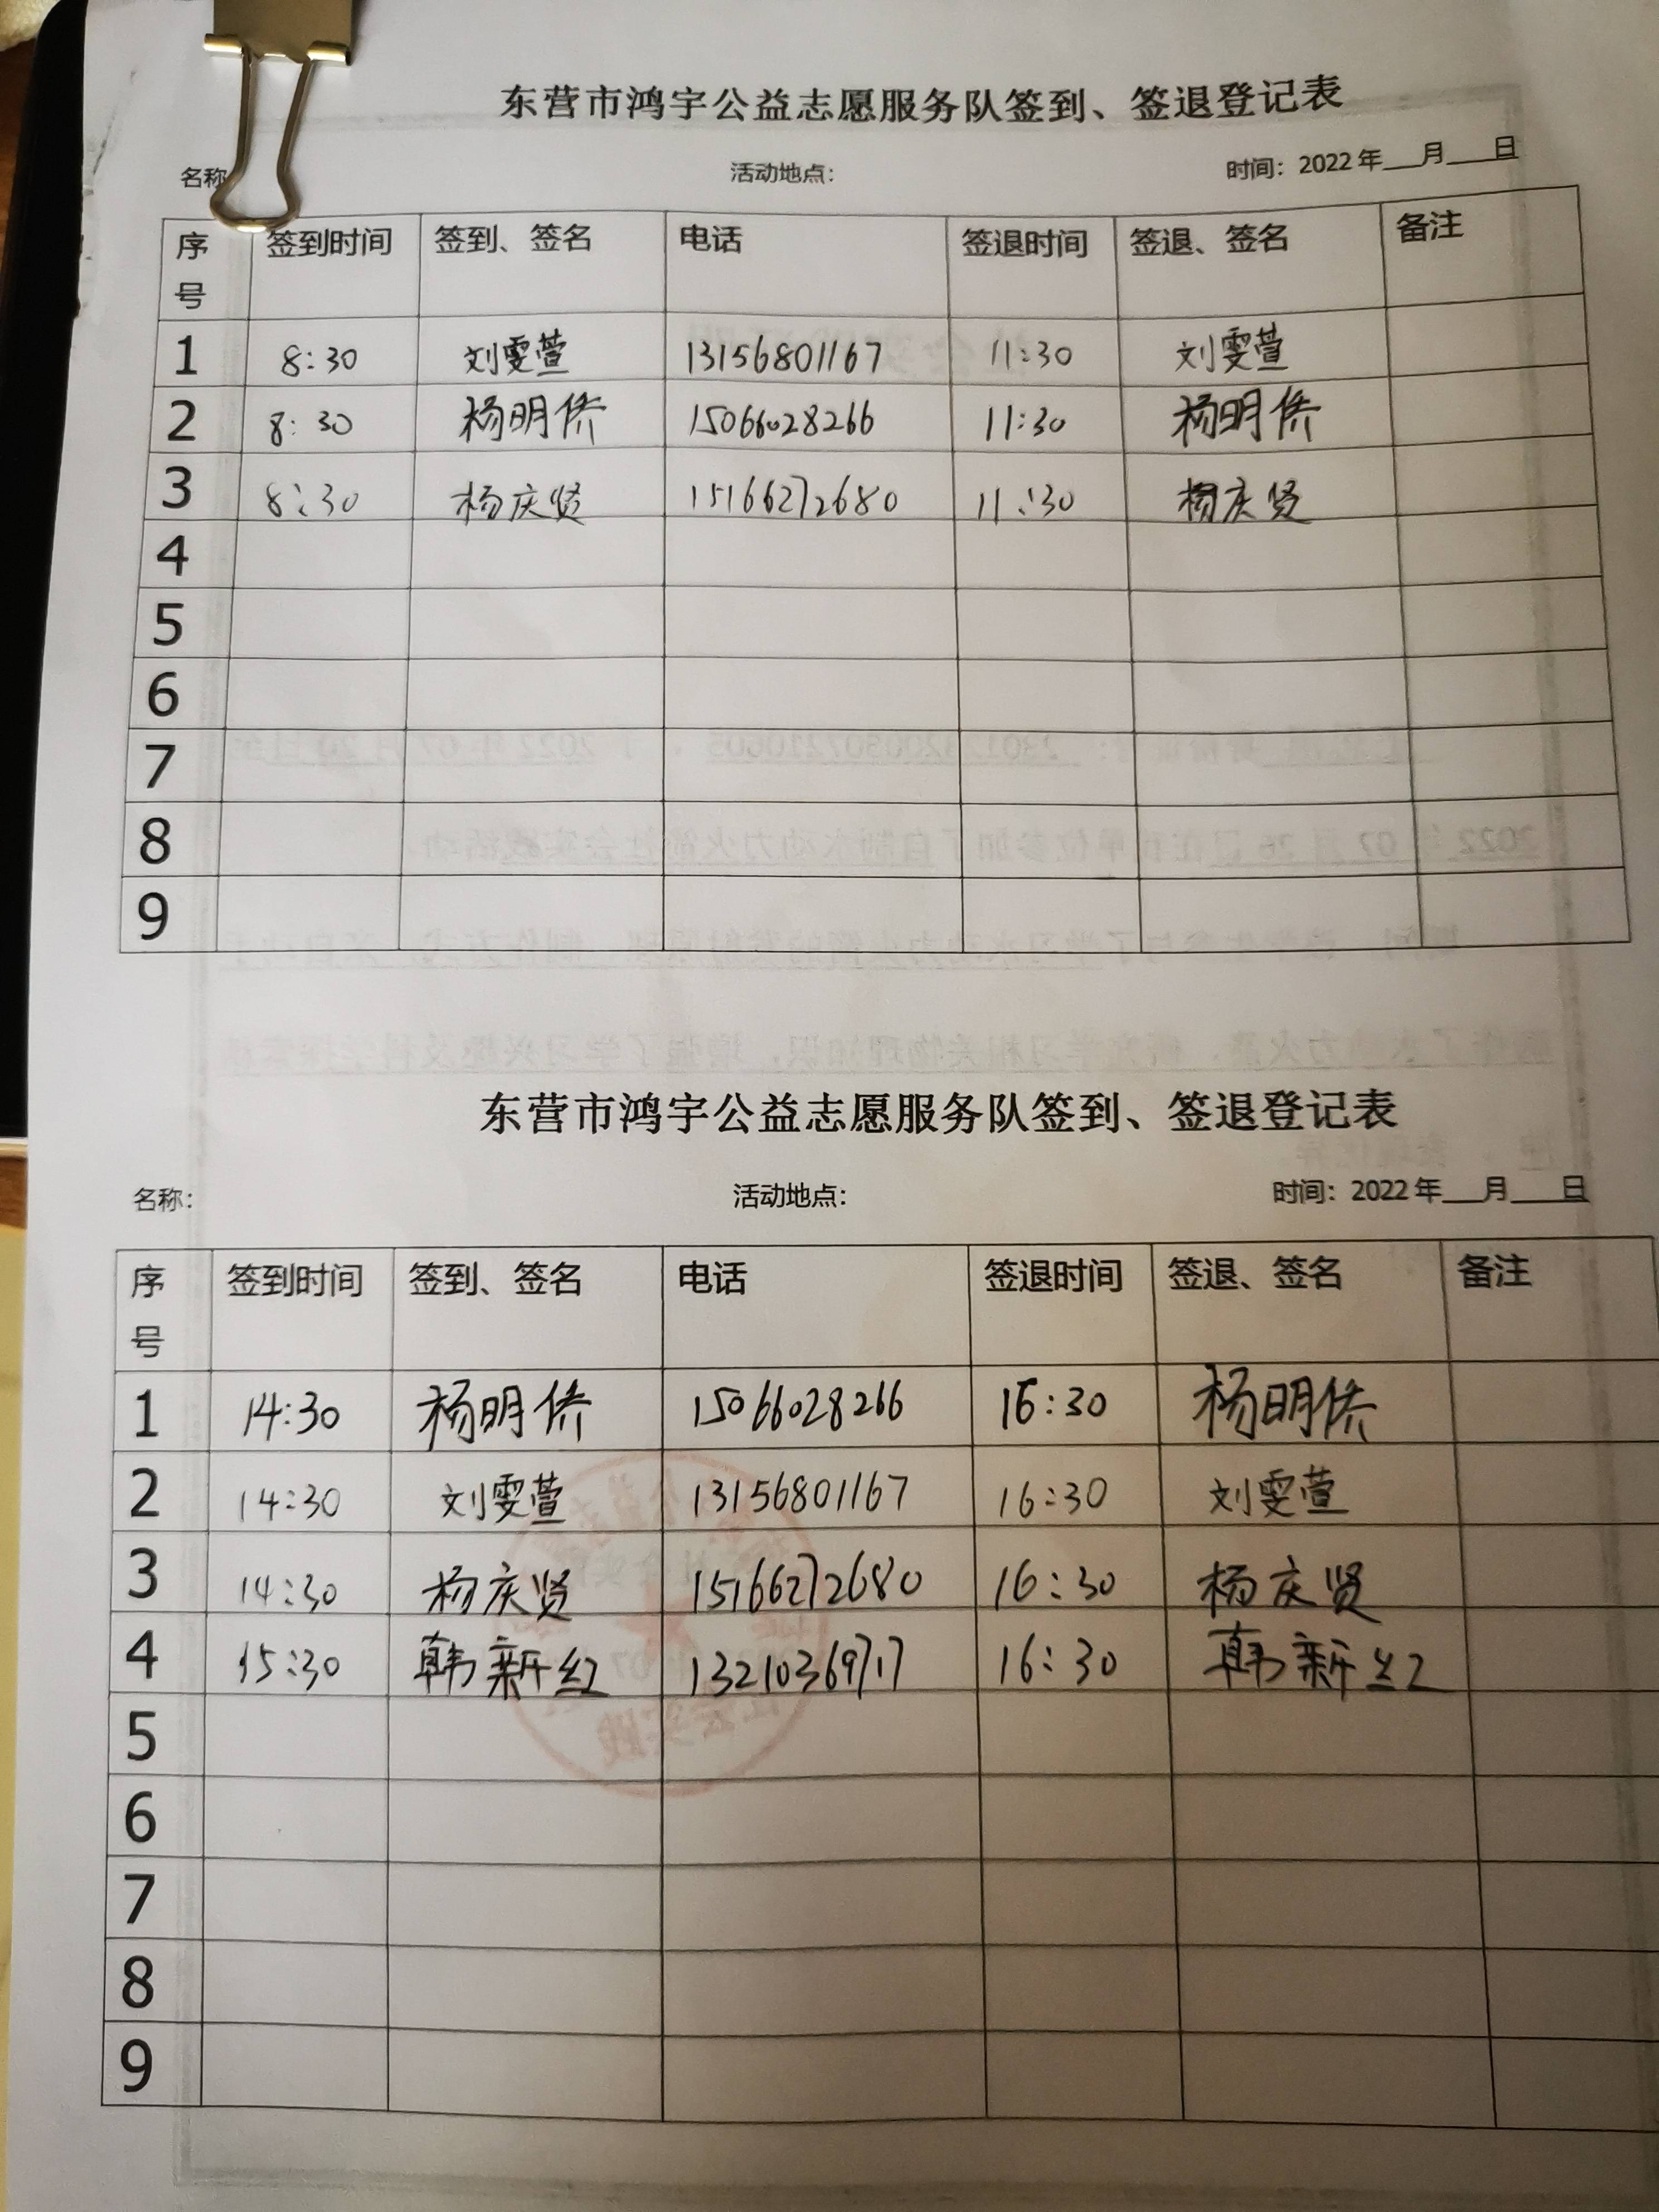 东营市鸿宇公益志愿服务队签到、签退登记表
名称 活动地点： 时间：2022年___月___日
序号 签到时间 签到、签名 电话 签退时间 签退、签名 备注
1 8:30 刘雯萱 13156801167 11:30 刘雯萱
2 8:30 杨明侨 15066028266 11:30 杨明侨
3 8:30 杨庆贤 15166272680 11:30 杨庆贤
4
5
6
7
8
9
东营市鸿宇公益志愿服务队签到、签退登记表
名称： 活动地点： 时间：2022年___月___日
序号 签到时间 签到、签名 电话 签退时间 签退、签名 备注
1 14:30 杨明侨 15066028266 16:30 杨明侨
2 14:30 刘雯萱 13156801167 16:30 刘雯萱
3 14:30 杨庆贤 15166272680 16:30 杨庆贤
4 15:30 韩新红 13210369717 16:30 韩新红
5
6
7
8
9